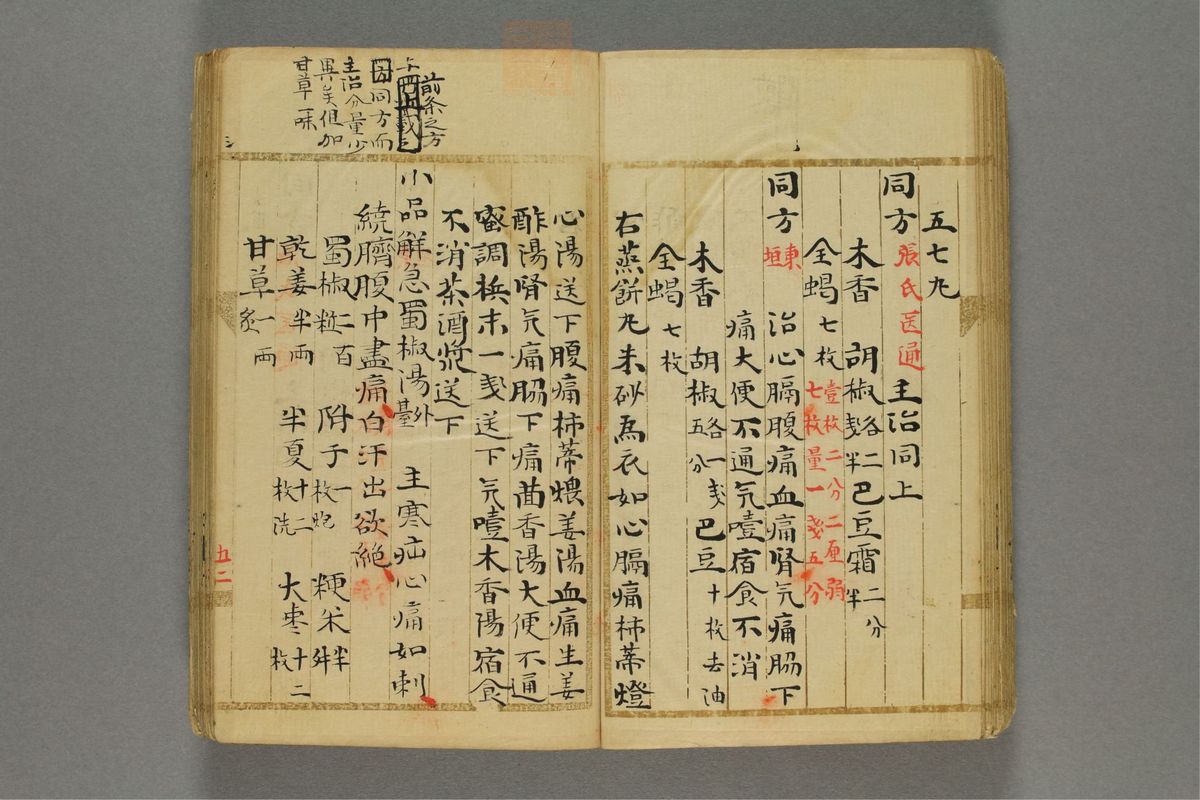 五七九
同方 張氏医通 主治同上
木香 胡椒各二戔半 巴豆霜二分半
全蝎七枚 壹枚二分二厘弱 七枚量一戔五分
同方 東垣
治心膈腹痛血痛腎気痛脇下
痛大便不通気噎宿食不消
木香 胡椒各一戔五分 巴豆十枚去油
全蝎七枚
右蒸餅丸朱砂為衣如心膈痛柿蒂燈
心湯送下腹痛柿蒂煨姜湯血痛生姜
酢湯腎気痛脇下痛茴香湯大便不通
蜜調檳末一戔送下気噎木香湯宿食
不消茶酒漿送下
前条之方
同方而
主治分量少
異矣但加
甘草一味
小品解急蜀椒湯 外臺 主寒疝心痛如刺
繞臍腹中盡痛白汗出欲絶
蜀椒二百粒 附子一枚炮 粳米半舛
乾姜半両 半夏十二枚洗 大棗十二枚
甘草一両炙
五二